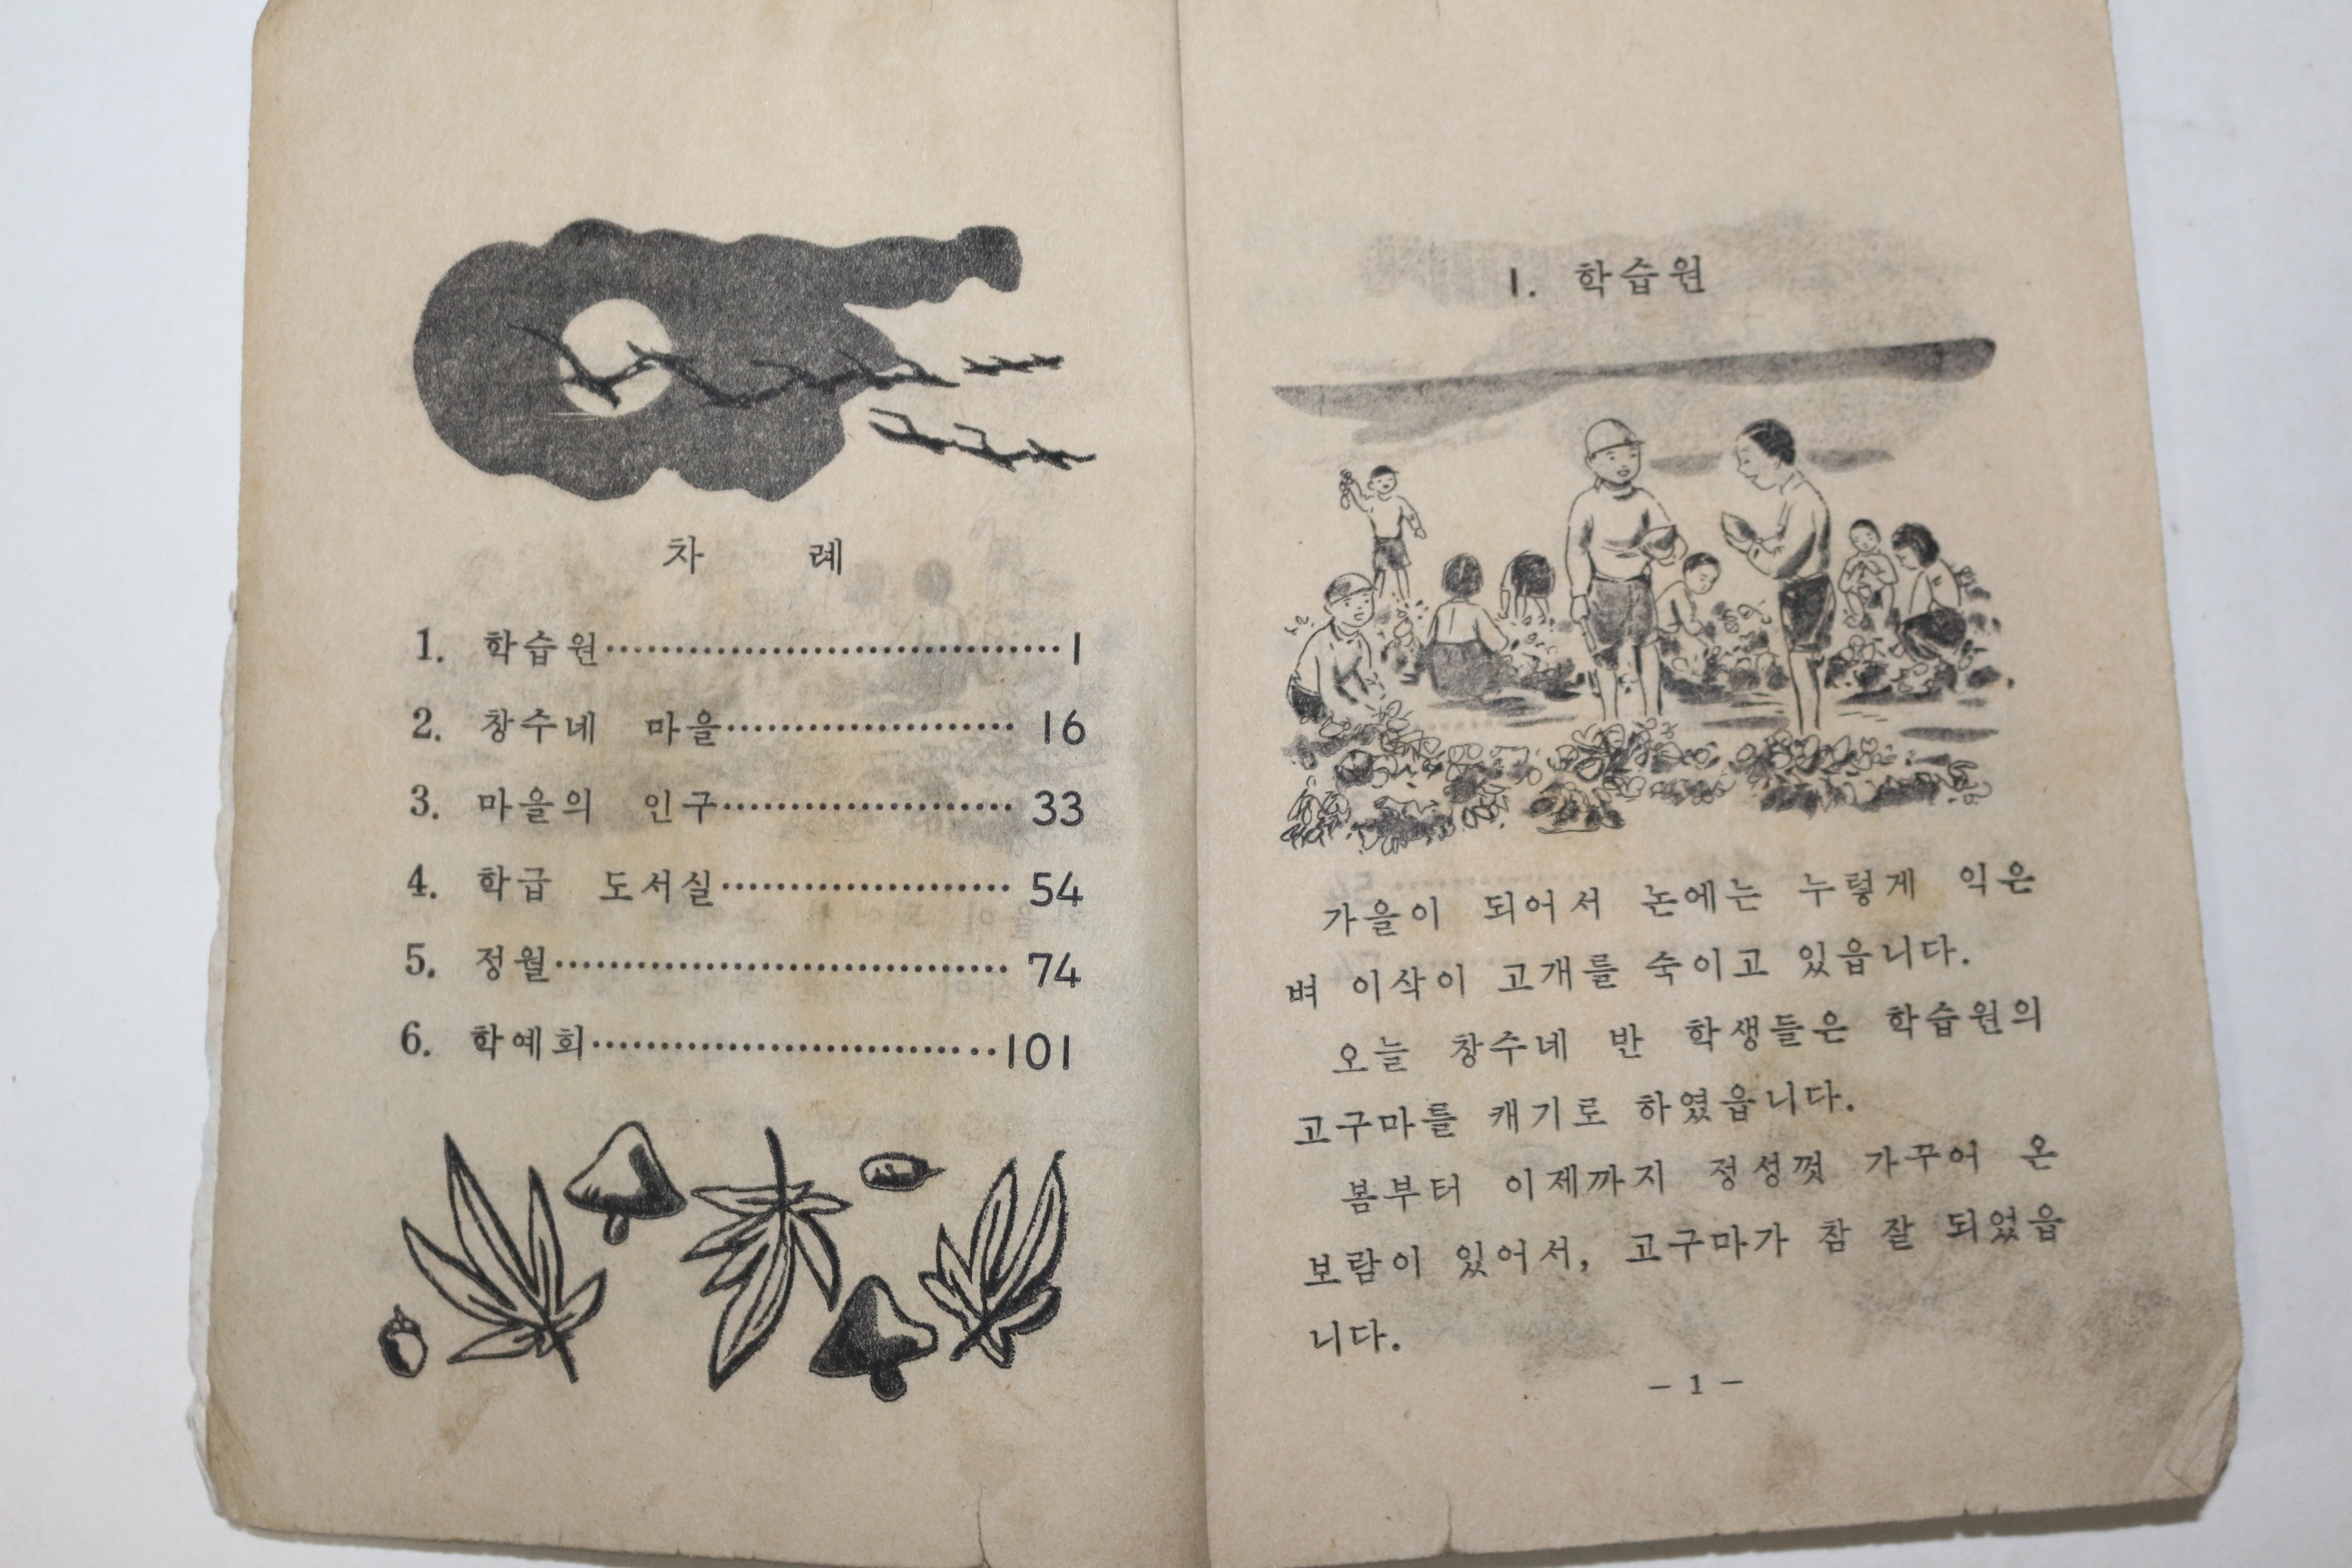 차 례
1. 학습원 1
2. 창수네 마을 16
3. 마을의 인구 33
4. 학급 도서실 54
5. 정월 74
6. 학예회 101
1. 학습원
가을이 되어서 논에는 누렇게 익은
벼 이삭이 고개를 숙이고 있읍니다.
오늘 창수네 반 학생들은 학습원의
고구마를 캐기로 하였읍니다.
봄부터 이제까지 정성껏 가꾸어 온
보람이 있어서, 고구마가 참 잘 되었읍
니다.
– 1 –